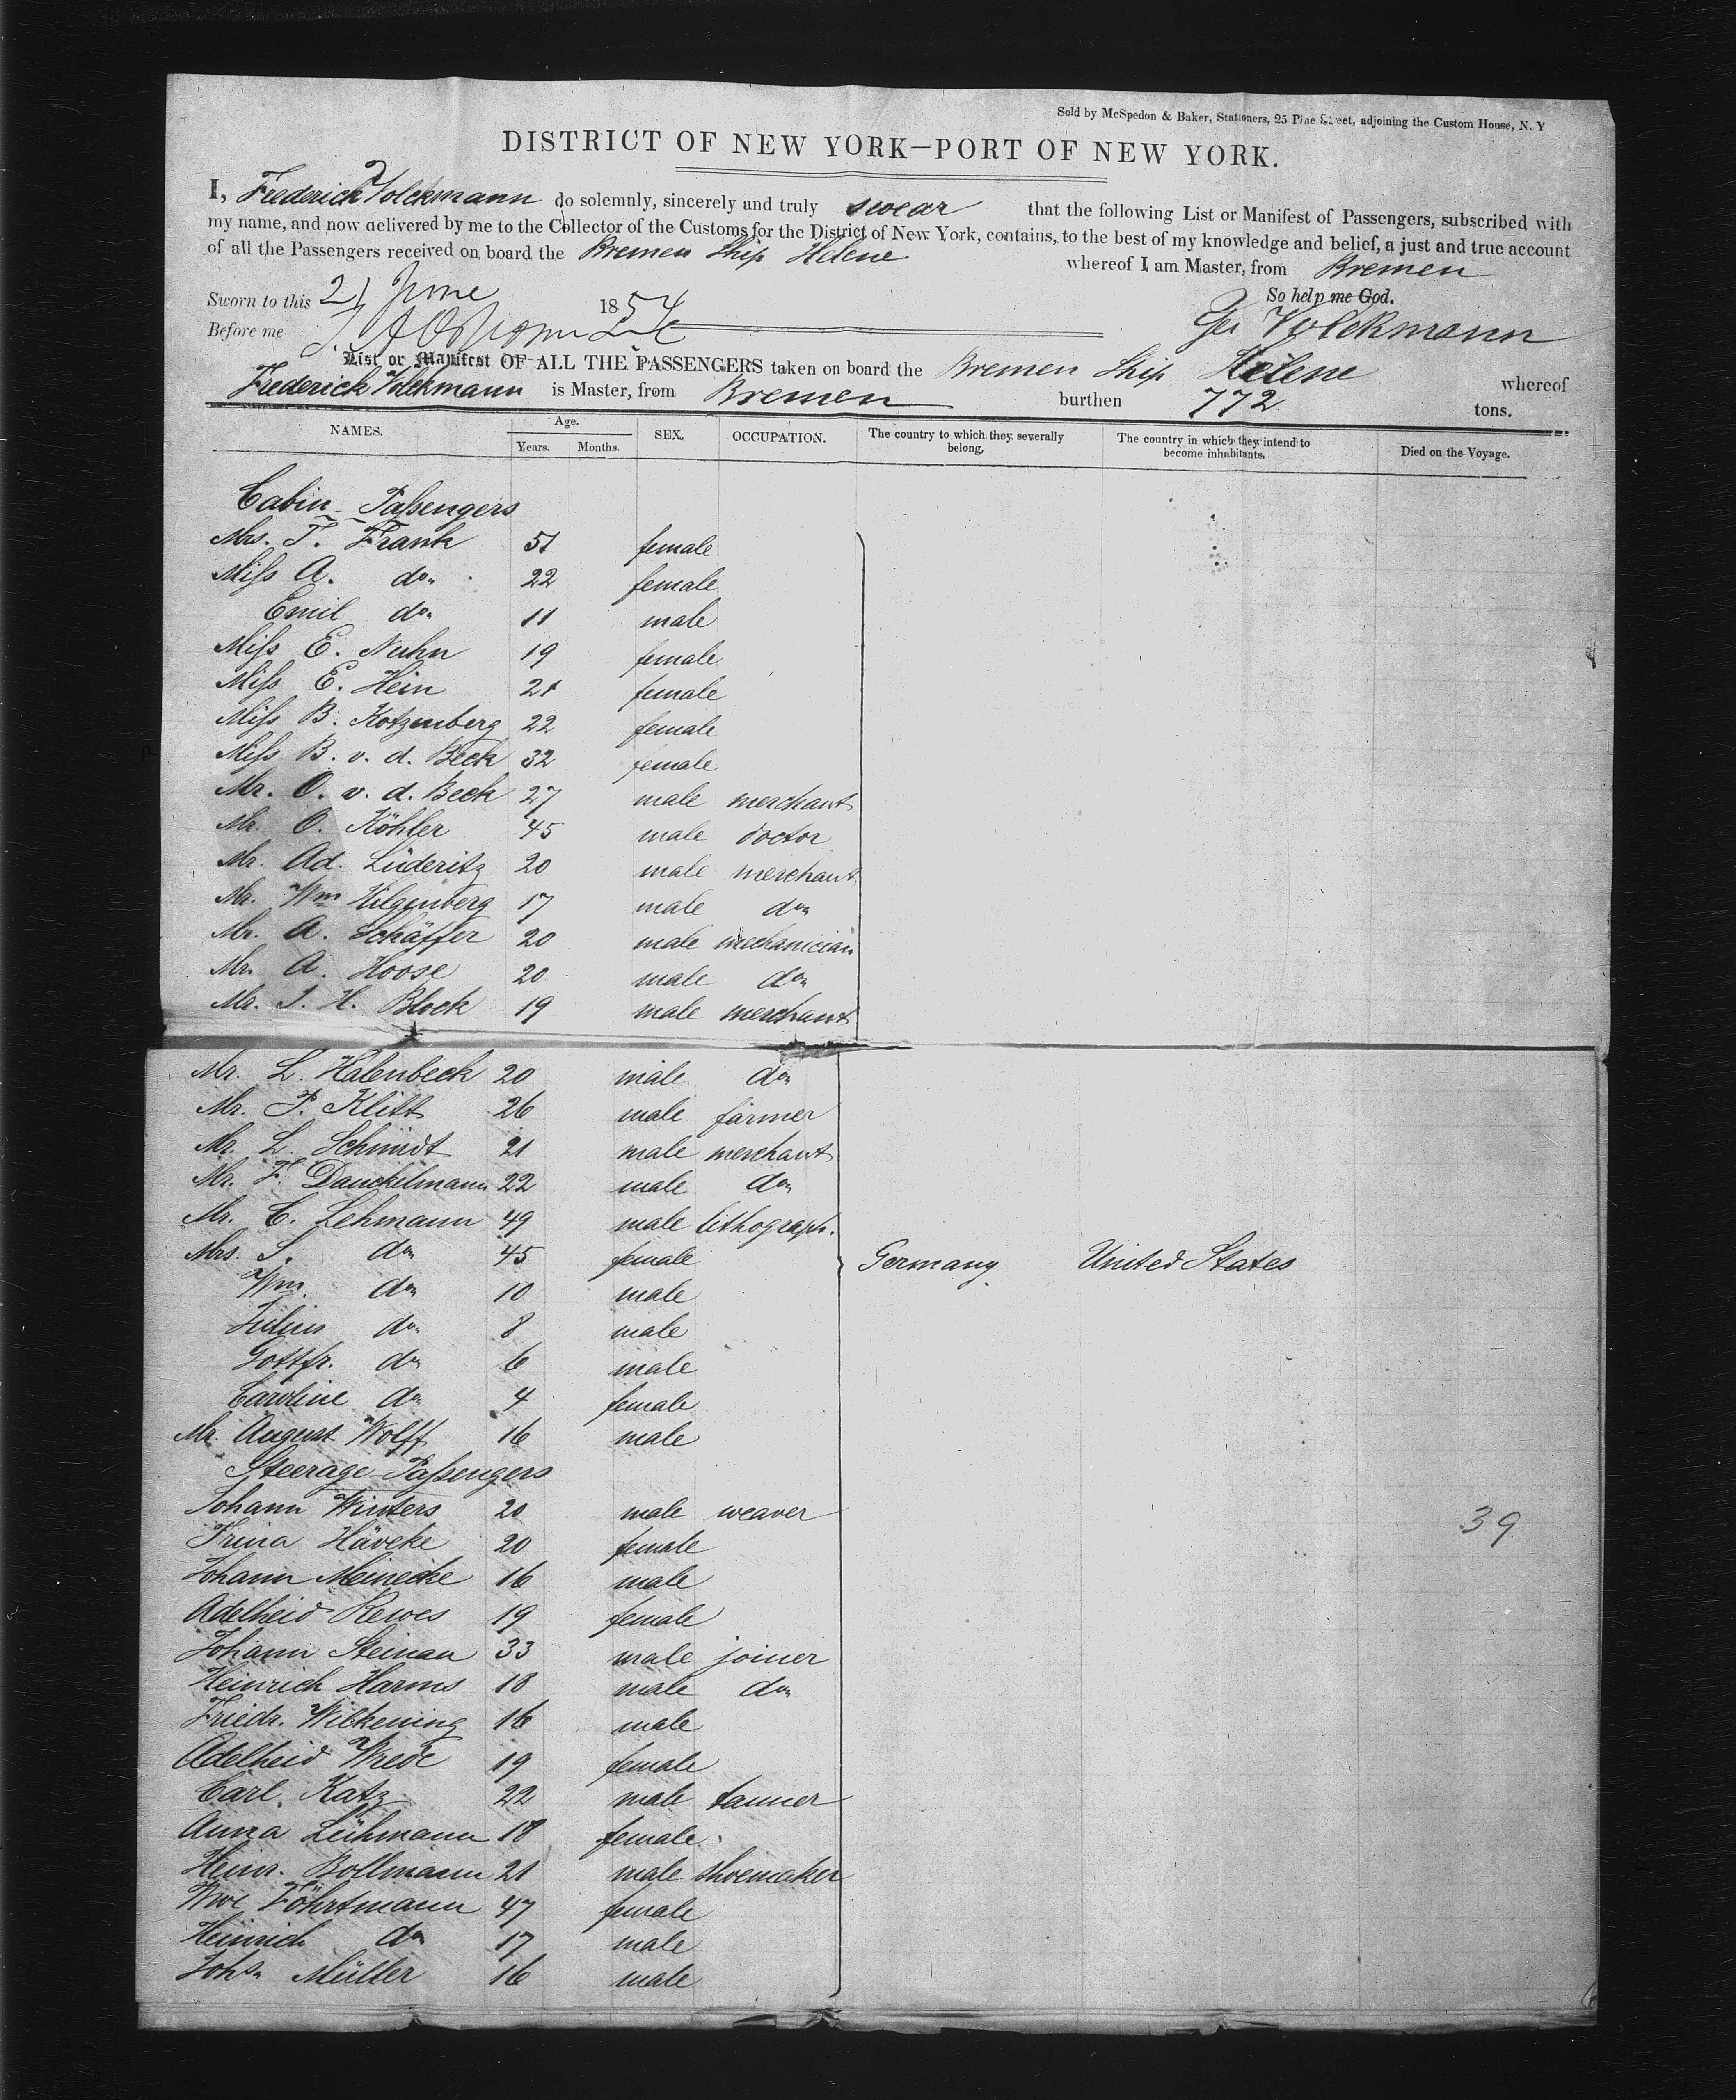 Sold by McSpedon & Baker, Stationers, 25 Pine Street, adjoining the Custom House, N. Y
DISTRICT OF NEW YORK—PORT OF NEW YORK.
I, Frederich Volckmann do solemnly, sincerely and truly swear that the following List or Manifest of Passengers, subscribed with
my name, and now delivered by me to the Collector of the Customs for the District of New York, contains, to the best of my knowledge and belief, a just and true account
of all the Passengers received on board the Bremen Ship Helene whereof I am Master, from Bremen
So help me God.
Sworn to this 21 June 1854
Before me
Volckmann
List or Manifest OF ALL THE PASSENGERS taken on board the Bremen Ship Helene whereof
Frederich Volckmann is Master, from Bremen burthen 772 tons.
NAMES. Age. Years. Months. SEX. OCCUPATION. The country to which they severally belong. The country in which they intend to become inhabitants. Died on the Voyage.
Cabin-Passengers
Mrs. T. Frank 51 female
Miss A. do 22 female
Emil do 11 male
Miss E. Nuhn 19 female
Miss E. Hein 21 female
Miss B. Kotzenberg 22 female
Miss B. v. d. Beck 32 female
Mr. O. v. d. Beck 27 male merchant
Mr. O. Köhler 45 male doctor
Mr. Ad. Lüderitz 20 male merchant
Mr. Wm Hilgenberg 17 male do
Mr. A. Schäffer 20 male mechanician
Mr. A. Hoose 20 male do
Mr. J. H. Block 19 male merchant
Mr. L. Halenbeck 20 male do
Mr. P. Klitt 26 male farmer
Mr. L. Schmidt 21 male merchant
Mr. F. Danckelmann 22 male do
Mr. C. Lehmann 49 male lithograph.
Mrs. S. do 45 female Germany United States
Wm. do 10 male
Julius do 8 male
Gottfr. do 6 male
Caroline do 4 female
Mr. August Wolff 16 male
Steerage-Passengers
Johann Winters 20 male weaver 39
Trina Häveke 20 female
Johann Meinecke 16 male
Adelheid Rewes 19 female
Johann Steinau 33 male joiner
Heinrich Harms 18 male do
Friedr. Wilkening 16 male
Adelheid Wrede 19 female
Carl Katz 22 male tanner
Anna Lühmann 18 female
Heinr. Bollmann 21 male shoemaker
Wwe Föhrtmann 47 female
Heinrich do 17 male
Johs. Müller 16 male